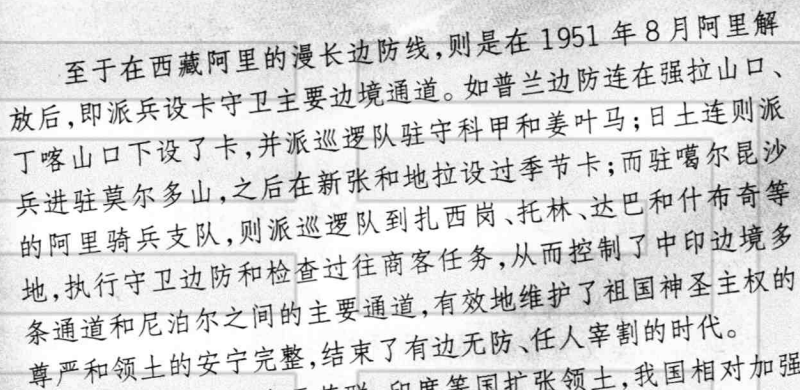 至于在西藏阿里的漫长边防线,则是在 1951 年 8 月阿里解
放后,即派兵设卡守卫主要边境通道。如普兰边防连在强拉山口、
丁喀山口下设了卡,并派巡逻队驻守科甲和姜叶马;日土连则派
兵进驻莫尔多山,之后在新张和地拉设过季节卡;而驻噶尔昆沙
的阿里骑兵支队,则派巡逻队到扎西岗、托林、达巴和什布奇等
地,执行守卫边防和检查过往商客任务,从而控制了中印边境多
条通道和尼泊尔之间的主要通道,有效地维护了祖国神圣主权的
尊严和领土的安宁完整,结束了有边无防、任人宰割的时代。
印度等国扩张领土,我国相对加强